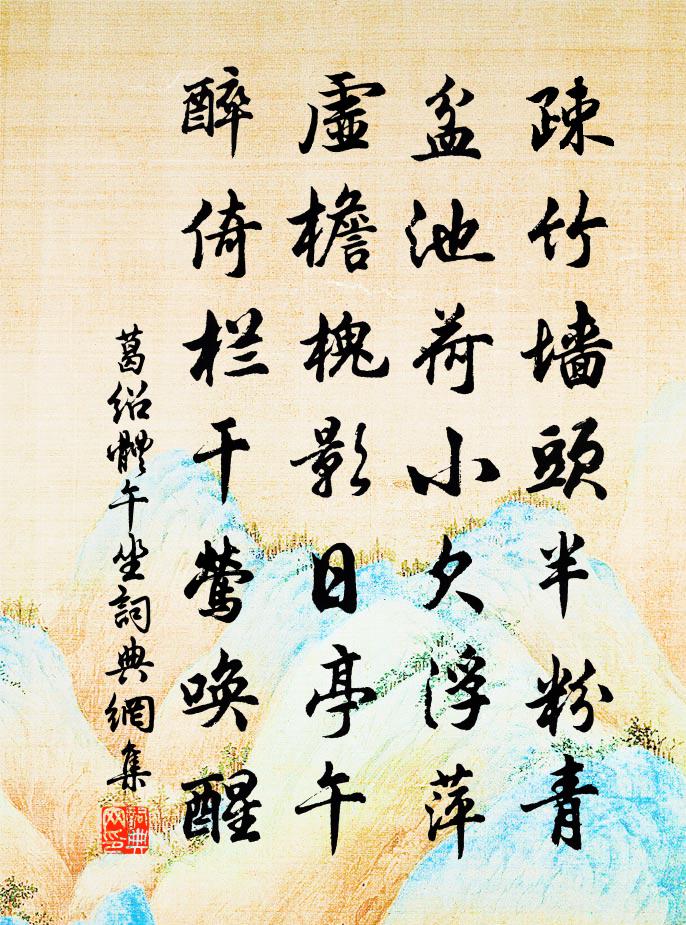 疎竹墙頭半粉青
盆池荷小欠浮萍
虛檐槐影日亭午
醉倚栏干莺唤醒
葛绍體午坐詞典網集
詞典网印